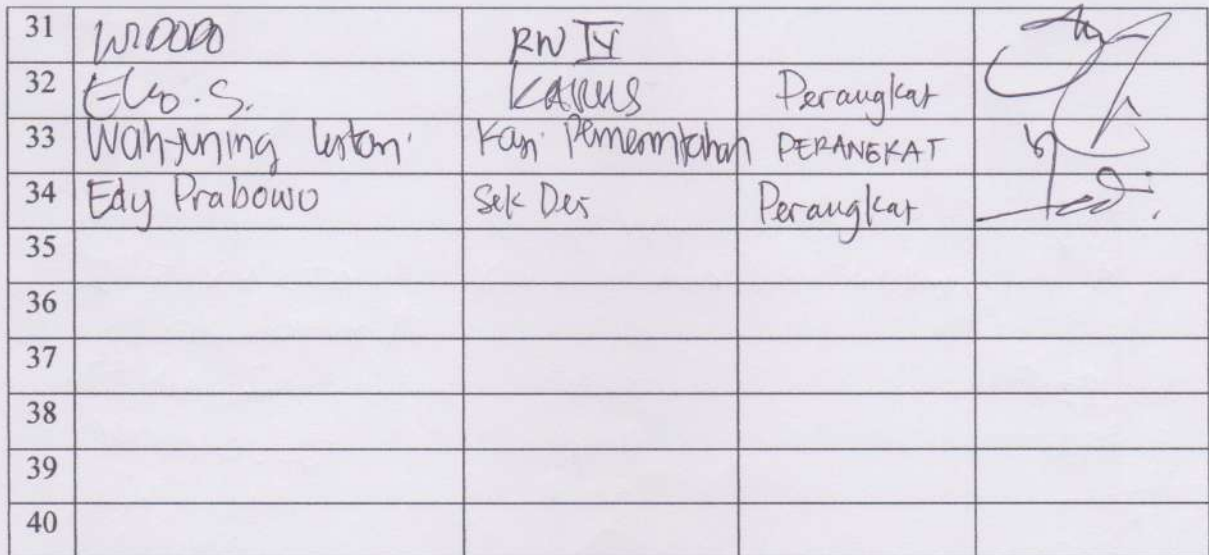 31 WIDODO RW IV
32 Eko. S. KADUS Perangkat
33 Wahyuning Kasi Pemerintahan PERANGKAT
34 Edy Prabowo Sek Des Perangkat
35
36
37
38
39
40